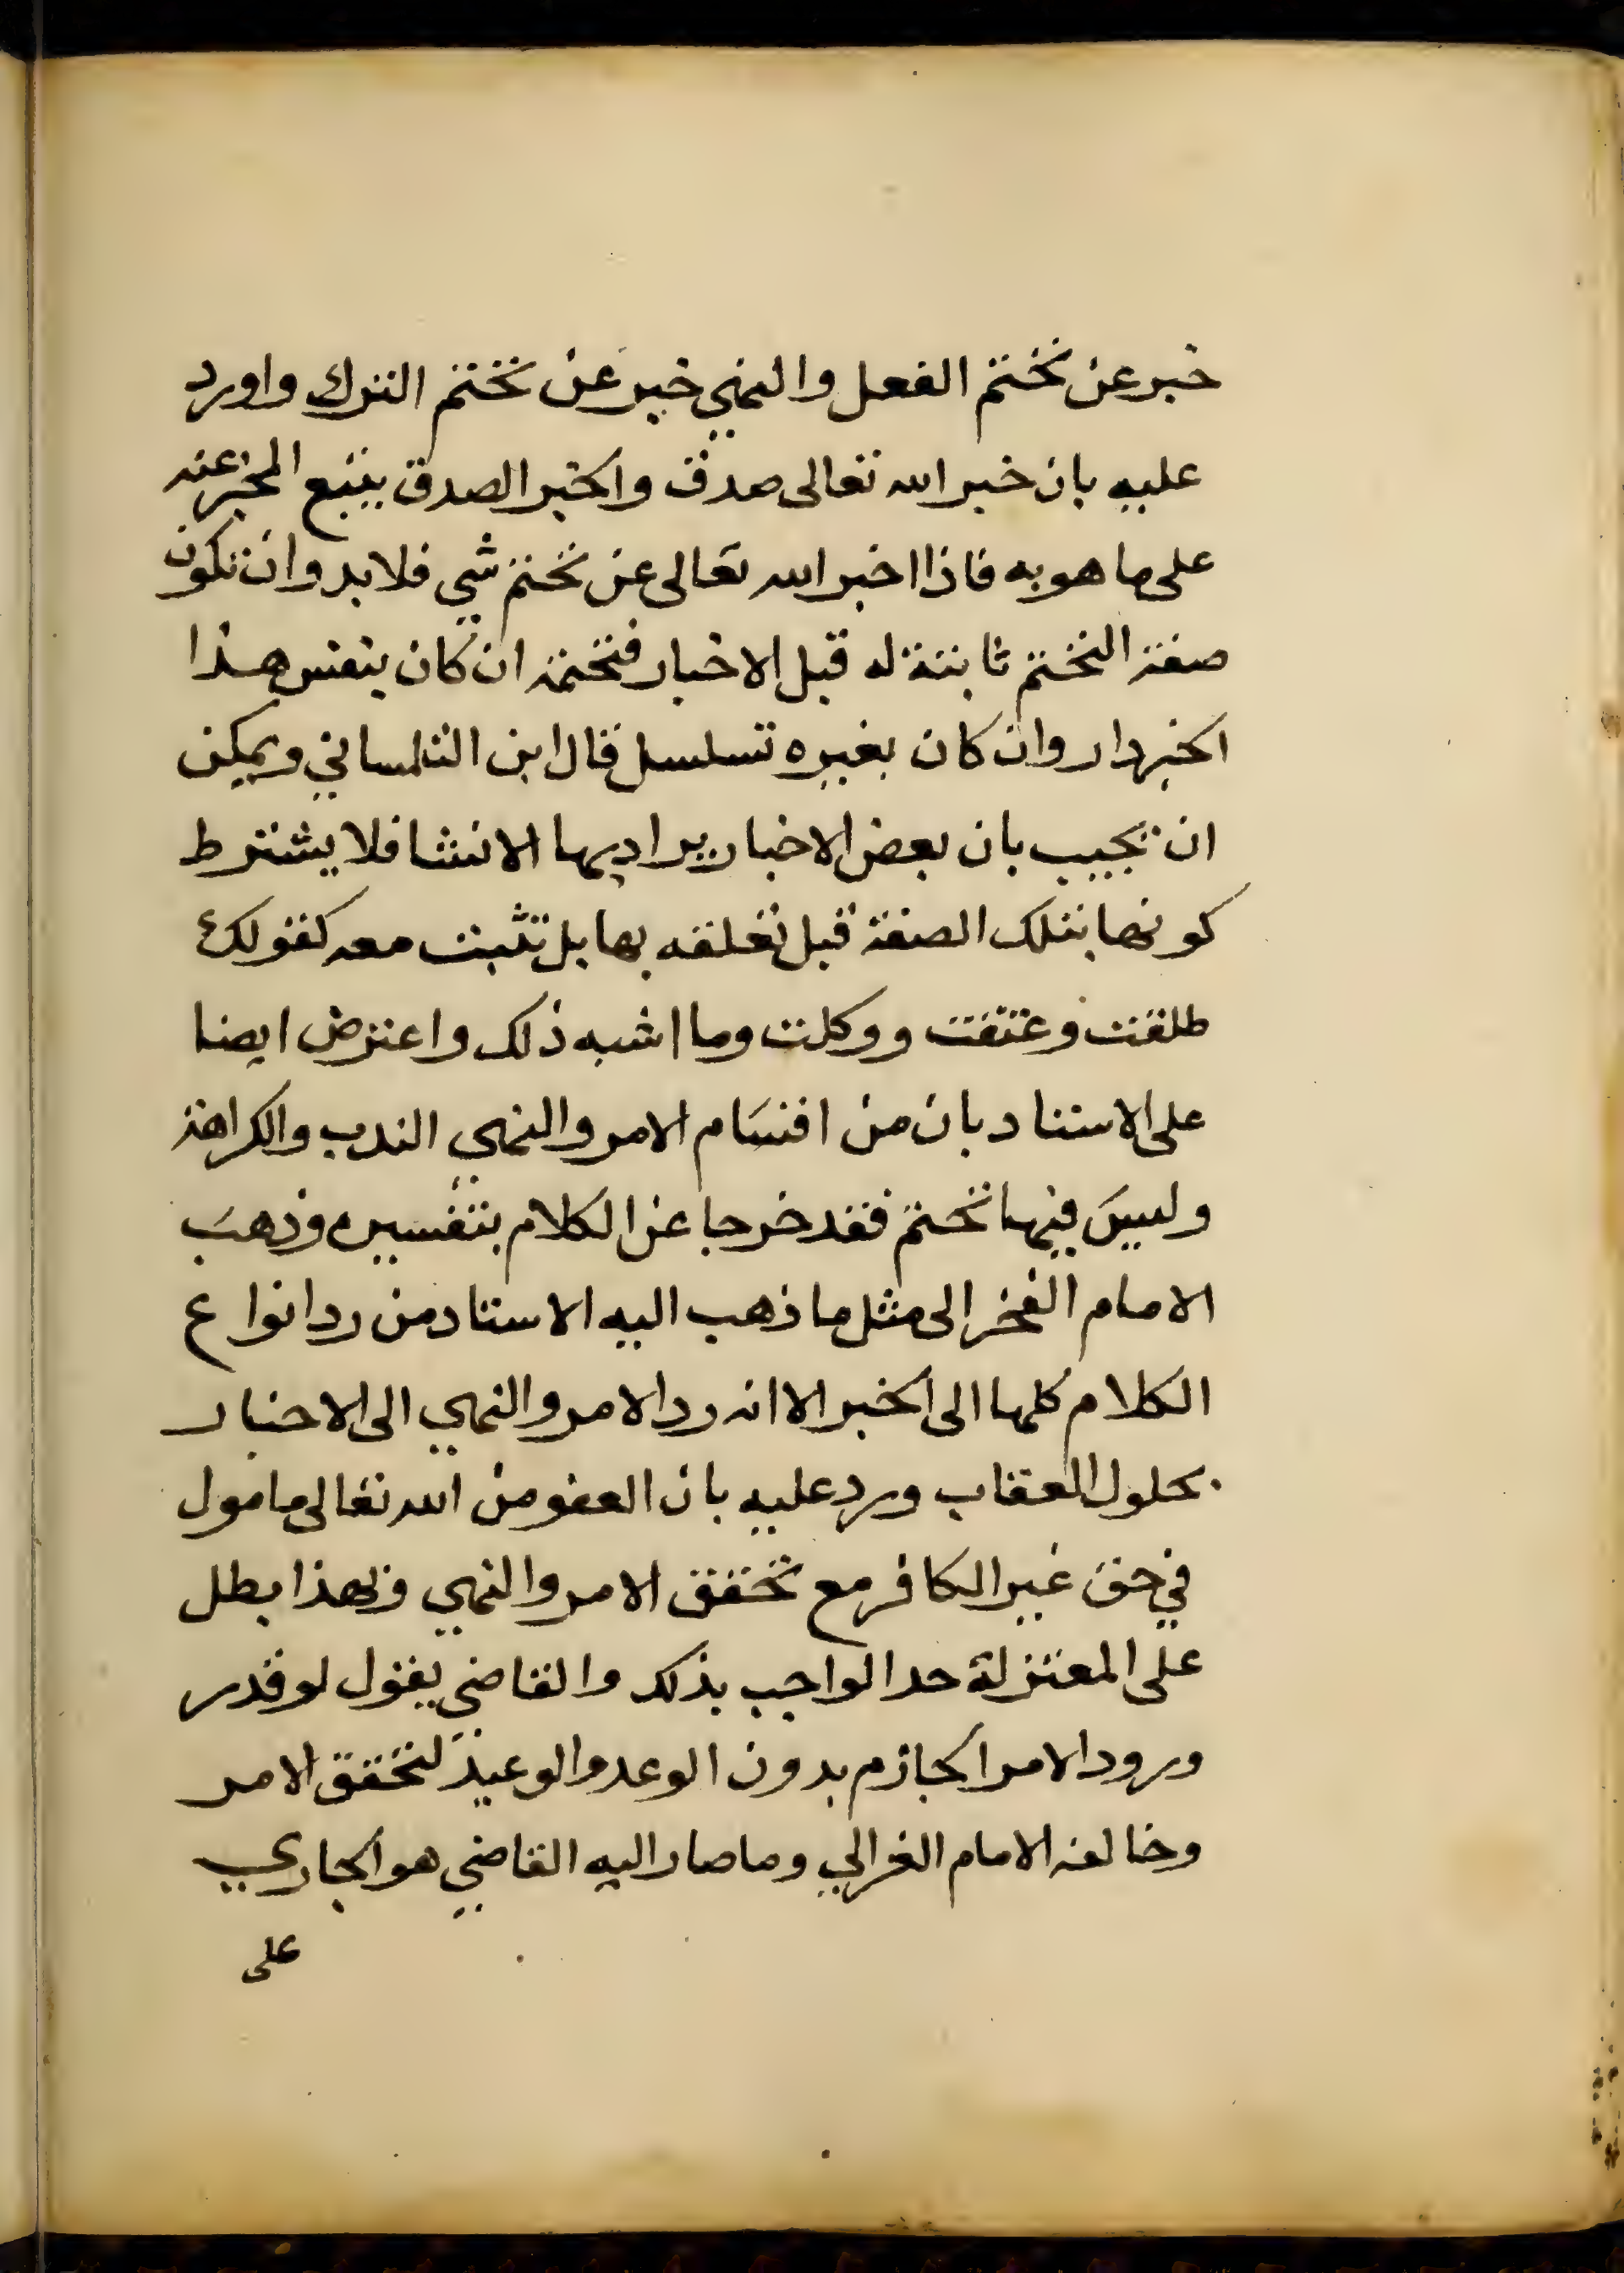 خبر عن تحتم الفعل والنهي خبر عن تحتم الترك واورد
عليه بان خبر الله تعالى صدق والخبر الصدق يتبع المخبر عنه
على ما هو به فاذا اخبر الله تعالى عن تحتم شي فلا بد وان تكون
صفة التحتم ثابتة له قبل الاخبار فتحتمه ان كان بنفس هذا
الخبر دار وان كان بغيره تسلسل قال ابن التلمساني ويمكن
ان نجيب بان بعض الاخبار يراد بها الانشا فلا يشترط
كونها بتلك الصفة قبل تعلقه بها بل تثبت معه كقولك
طلقت وعتقت ووكلت وما اشبه ذلك واعترض ايضا
على الاستاد بان من اقسام الامر والنهي الندب والكراهة
وليس فيها تحتم فقد خرجا عن الكلام بتفسيره وذهب
الامام الفخر الى مثل ما ذهب اليه الاستاد من رد انواع
الكلام كلها الى الخبر الا انه رد الامر والنهي الى الاخبار
بحلول العقاب ورد عليه بان العفو من الله تعالى مامول
في حق غير الكافر مع تحقق الامر والنهي وبهذا بطل
على المعتزلة حد الواجب بذلك والقاضي يقول لو قدر
ورود الامر الجازم بدون الوعد والوعيد لتحقق الامر
وخالفه الامام الغزالي وما صار اليه القاضي هو الجاري
على